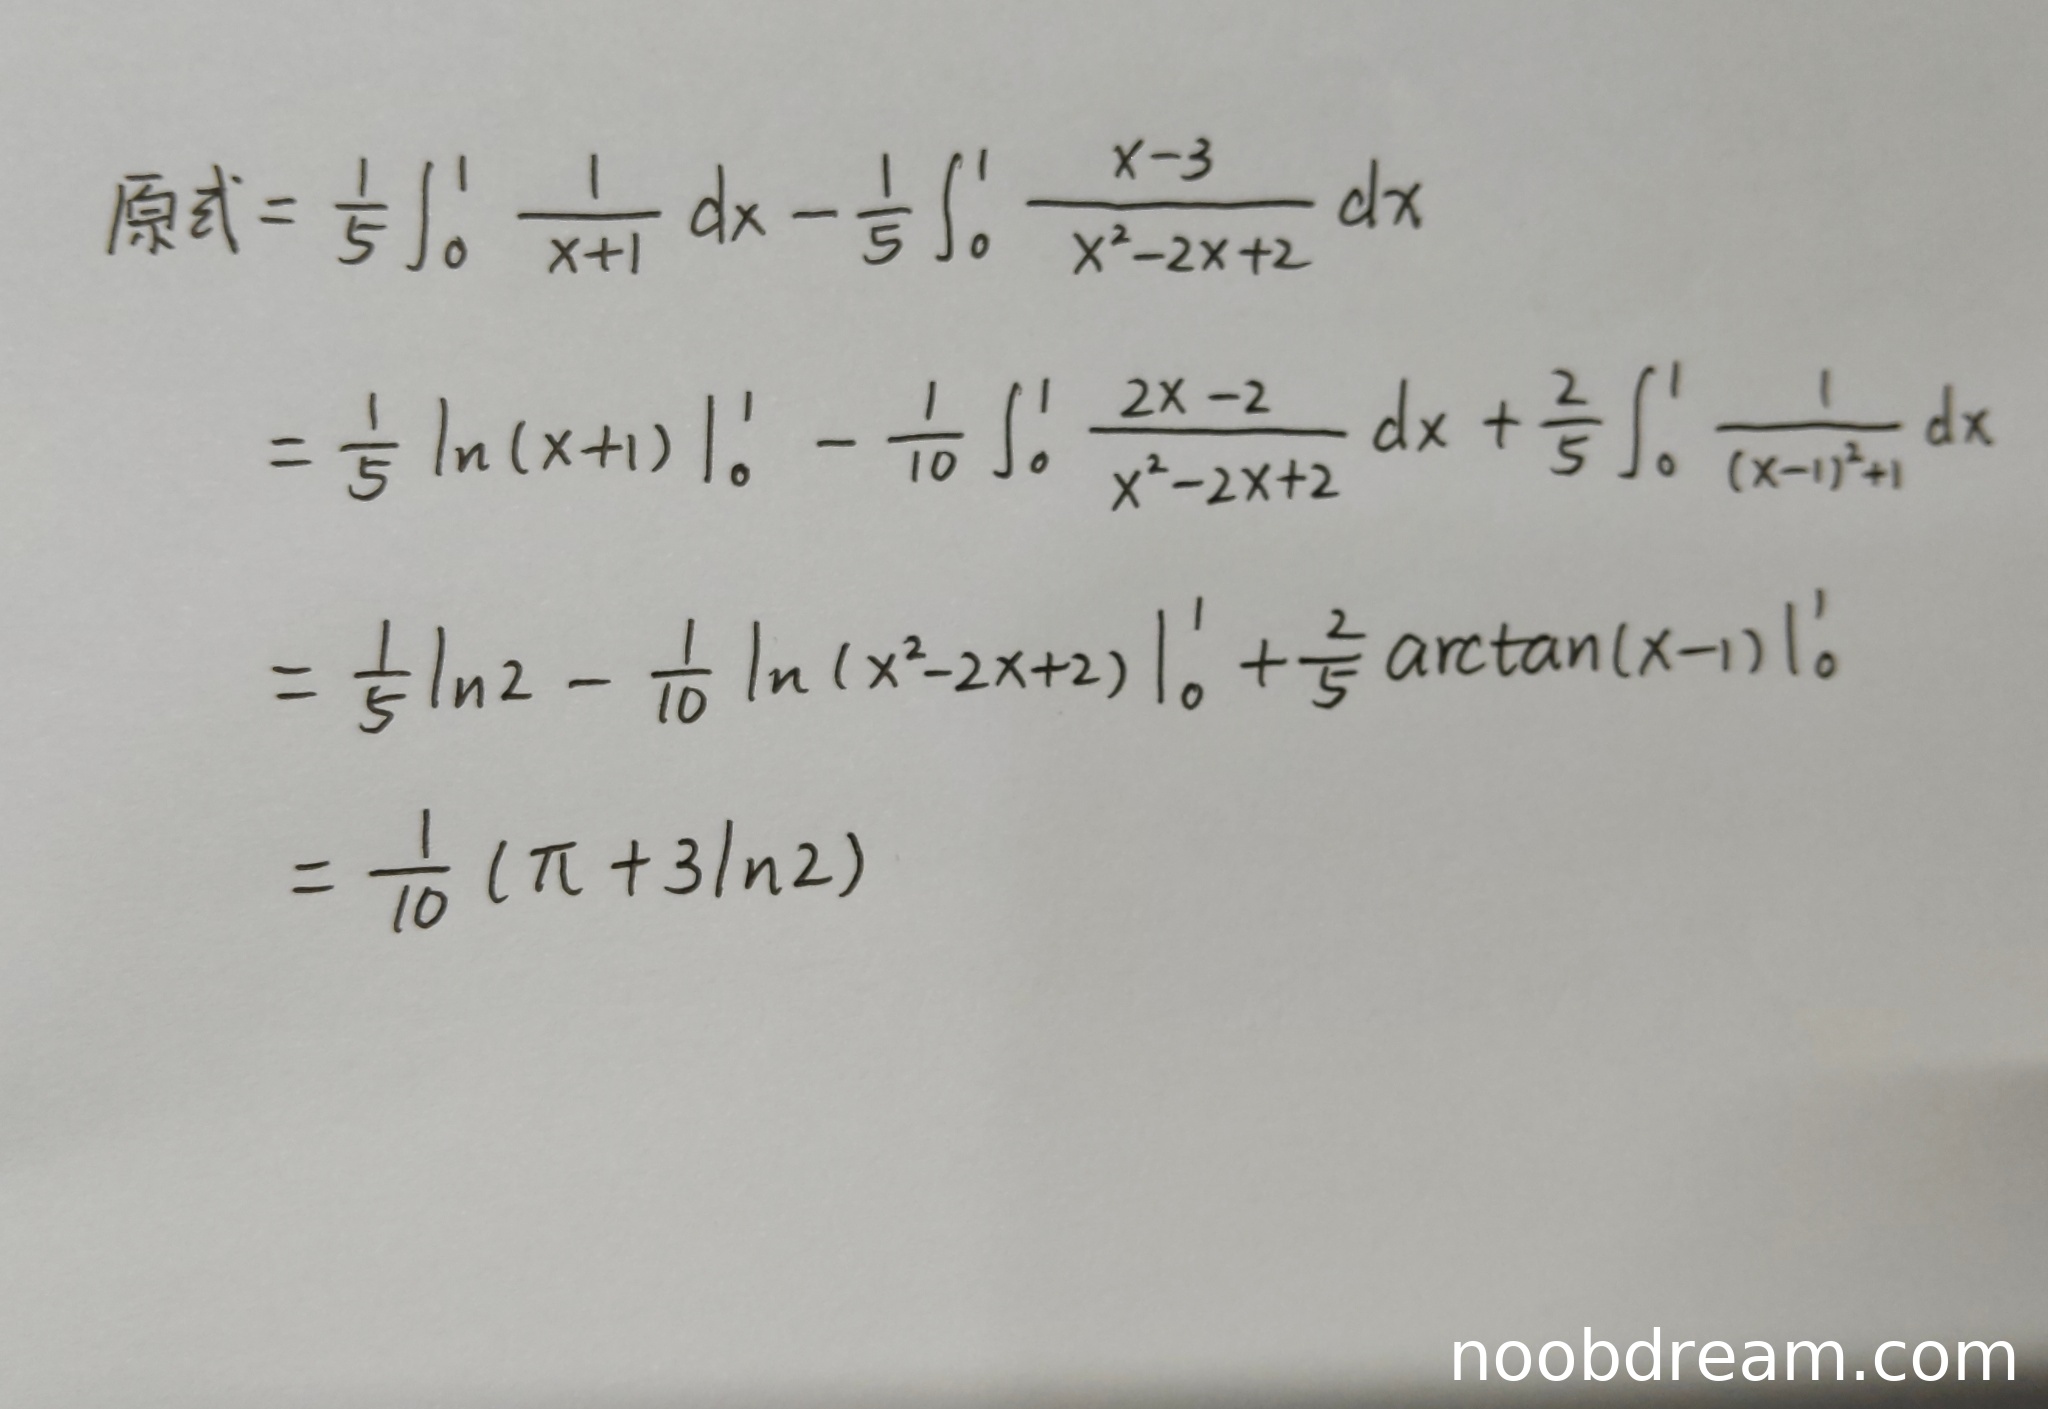 原式 = 1/5 ∫₀¹ 1/(x+1) dx − 1/5 ∫₀¹ (x−3)/(x²−2x+2) dx
= 1/5 ln(x+1) |₀¹ − 1/10 ∫₀¹ (2x−2)/(x²−2x+2) dx + 2/5 ∫₀¹ 1/((x−1)²+1) dx
= 1/5 ln2 − 1/10 ln(x²−2x+2) |₀¹ + 2/5 arctan(x−1) |₀¹
= 1/10 (π + 3ln2)
noobdream.com